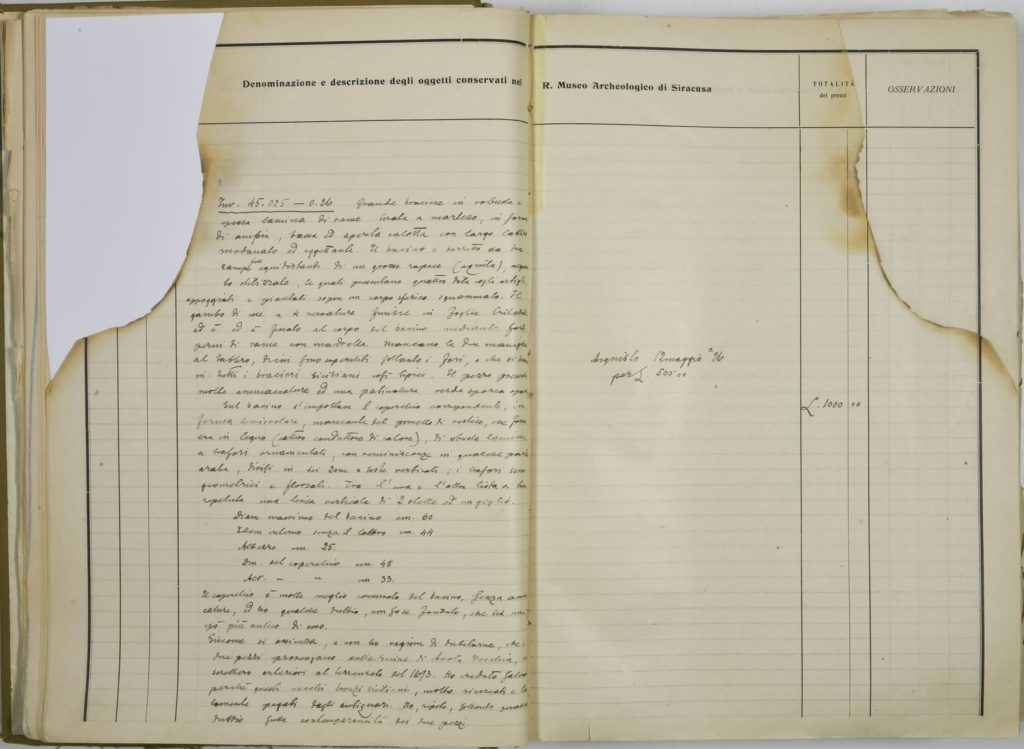 Denominazione e descrizione degli oggetti conservati nel R. Museo Archeologico di Siracusa
TOTALITÀ
dei prezzi
OSSERVAZIONI
Inv. 45.025 — 0.26 Grande braciere in robusta e
spessa lamina di rame tirata a martello, in forma
di ampia, bassa ed aperta calotta con largo labbro
modanato ed aggettante. Il bacino è sorretto da tre
zampe equidistanti di un grosso rapace (aquila),
lo stilizzate, le quali presentano quattro dita cogli artigli
appoggiati e piantati sopra un corpo sferico squammato. Il
gambo di esse a nervature finisce in foglie
ed è ed è fissato al corpo del bacino mediante forti
perni di rame con madrella. Mancano le due maniglie
al labbro, di cui sono superstiti soltanto i fori, e che si
in tutti i bracieri siciliani così tipici. Il pezzo presenta
molte ammaccature ed una patinatura verde sporca
Sul bacino s'impostava il coperchio corrispondente, in
forma semiovolare, mancante del pometto di vertice, che forse
era in legno (cattivo conduttore di calore), di robusta lamina
a trafori ornamentali, con reminiscenze in qualche parte
arabe, divisi in sei zone o liste verticali; i trafori sono
geometrici e floreali. Tra l'una e l'altra lista si ha
ripetuta una linea verticale di 2 stelle ed un giglio.
Diam. massimo del bacino cm. 60
Idem interno senza il labbro cm. 44
Altezza cm. 25.
Dm. del coperchio cm. 48
Alt. " " cm 33.
Il coperchio è molto meglio conservato del bacino, senza
cature, ed ho qualche dubbio, non fosse fondato, che sia un
pò più antico di esso.
Siccome si assicura, e non ho ragione di dubitarne, che i
due pezzi provengano dalle rovine di Avola Vecchia,
sarebbero anteriori al terremoto del 1693. Ho creduto
perché questi vecchi bronzi siciliani, molto ricercati e
tamente pagati dagli antiquari. Ho, ripeto, soltanto qualche
dubbio sulla contemporaneità dei due pezzi.
Acquisto 12 maggio 26
per £. 500.00
£. 1000 00